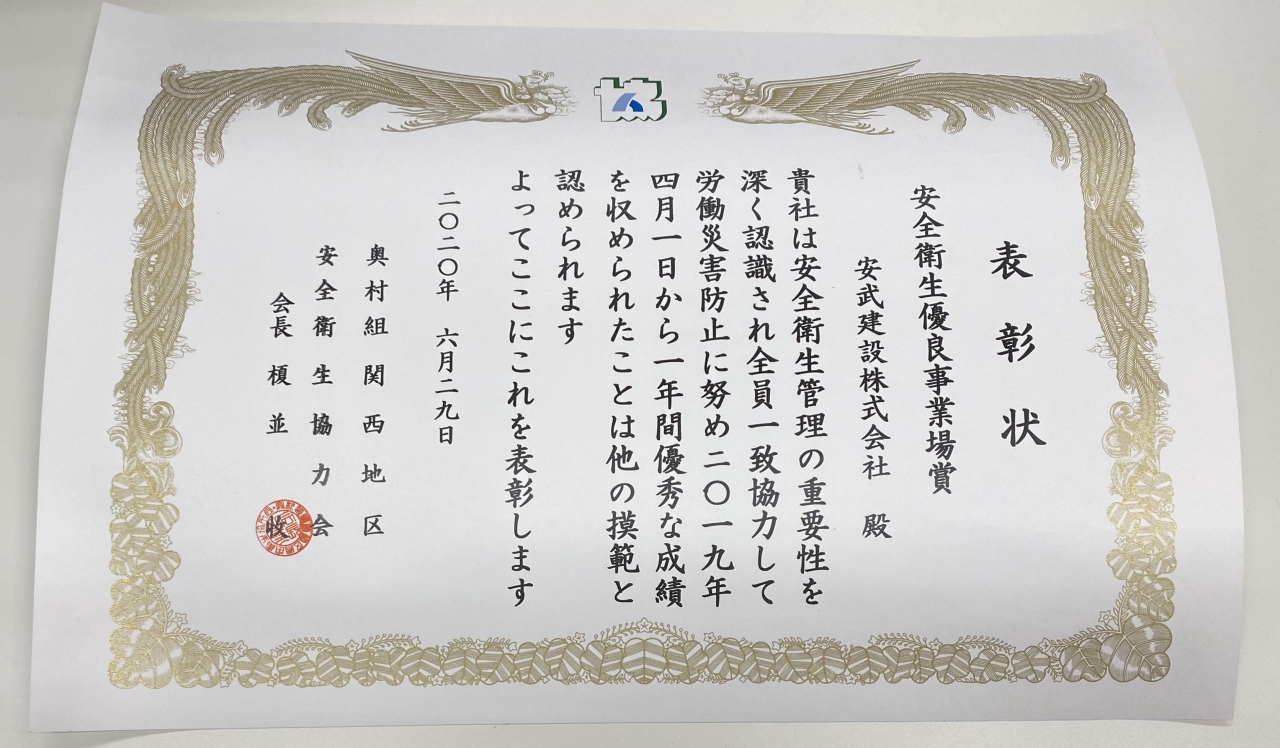 表彰状
安全衛生優良事業場賞
安武建設株式会社 殿
貴社は安全衛生管理の重要性を
深く認識され全員一致協力して
労働災害防止に努め二〇一九年
四月一日から一年間優秀な成績
を収められたことは他の摸範と
認められます
よってここにこれを表彰します
二〇二〇年 六月二九日
奥村組関西地区
安全衛生協力会
会長 榎並 收